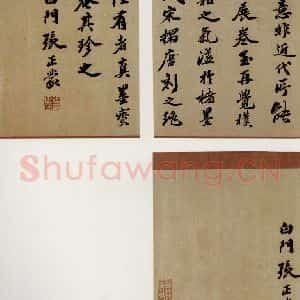 意非近代所能
展卷至再覺樸
之氣溢於楮墨
宋搨唐刻之絕
有者真墨寶
其珍之
白門張正蒙
Shufawang.CN
白門張正